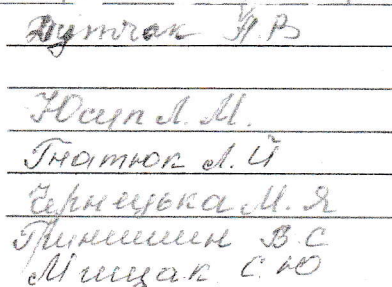 Дутчак П.В
Юсип Л.М.
Гнатюк Л.Й
Чернецька М.Я
Гринишин В.С
Мицак С.Ю